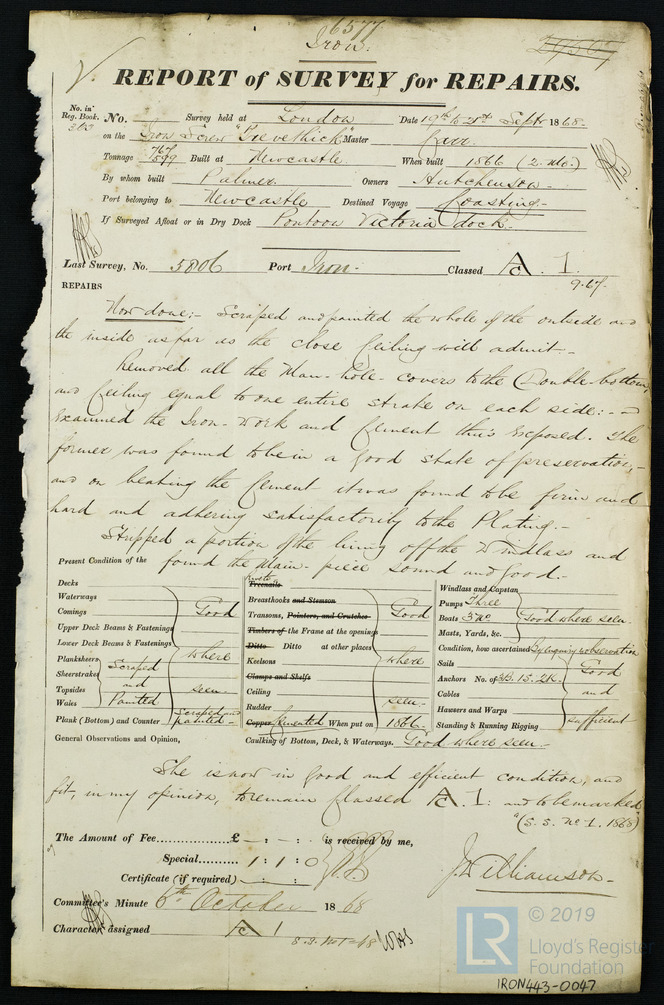 6577
Iron.
REPORT of SURVEY for REPAIRS.
No. in Reg. Book. No. Survey held at London Date 19th to 21st Septr 1868.
on the Iron Screw "Trevethick" Master
Tonnage 767/599 Built at Newcastle. When built 1866 (2. mo.)
By whom built Palmer. Owners Hutchenson.
Port belonging to Newcastle Destined Voyage Coasting.
If Surveyed Afloat or in Dry Dock Pontoon Victoria dock.
Last Survey, No. 5806 Port Iron. Classed A. 1.
9.67.
REPAIRS
Now done:- Scraped and painted the whole of the outside and
the inside as far as the close Ceiling will admit-
Removed all the Man-hole-covers to the Double-bottom,
and Ceiling equal to one entire strake on each side:-
Examined the Iron-work and Cement thus exposed. The
former was found to be in a Good State of preservation,-
and on beating the Cement it was found to be firm and
hard and adhering satisfactorily to the Plating.-
Stripped a portion of the lining off the Windlass and
found the main-piece sound and good.-
Present Condition of the
Decks
Waterways
Comings
Upper Deck Beams & Fastenings
Lower Deck Beams & Fastenings
Good where seen.
Planksheers
Sheerstrakes
Topsides
Wales
Scraped and Painted
Plank (Bottom) and Counter Scraped and painted-
General Observations and Opinion,
Rivets
Treenails
Breasthooks and Stemson
Transoms, Pointers, and Crutches
Timbers of the Frame at the openings
Ditto Ditto at other places
Keelsons
Clamps and Shelfs
Ceiling
Rudder
Good where seen.
Copper Cemented When put on 1866.
Caulking of Bottom, Deck, & Waterways. Good where seen-
Windlass and Capstan
Pumps Three
Boats 3 No
Masts, Yards, &c.
Good where seen.
Condition, how ascertained By inquiry & observation
Sails
Anchors No. of 3B. 1S. 2K.
Cables
Hawsers and Warps
Standing & Running Rigging
Good and sufficient
She is now in Good and efficient condition, and
fit, in my opinion, to remain Classed A. 1: and to be marked
"(S. S. No 1. 1868)
The Amount of Fee............£ - : - : - is received by me,
Special.......... 1 : 1 : 0
Certificate (if required) - : - : -
J. Williamson-
Committee's Minute 6th October 1868
Character assigned A 1
S.S. No 1-68
LR
© 2019
Lloyd's Register
Foundation
IRON443-0047